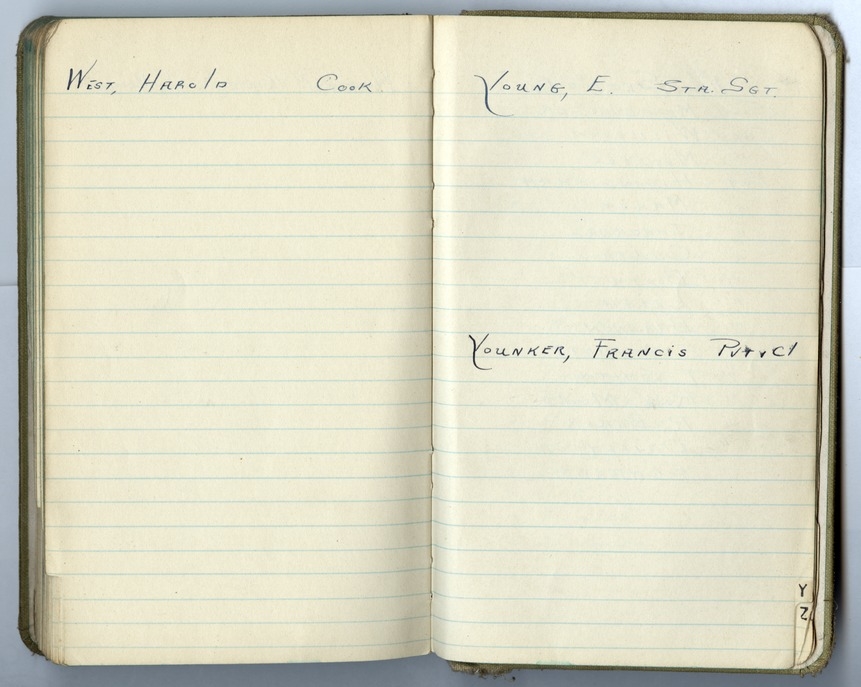 West, Harold Cook
Young, E. Sta. Sgt.
Younker, Francis
Y
Z